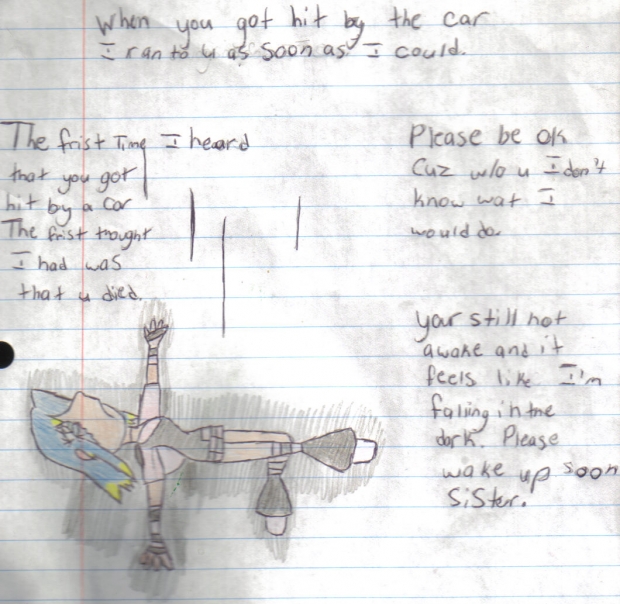 When you got hit by the car
I ran to u as soon as I could.
The frist Time I heard
that you got
hit by a car
The frist trought
I had was
that u died.
Please be ok
Cuz w/o u I don't
know wat I
would do.
your still not
awake and it
feels like I'm
falling in the
dark. Please
wake up soon
SiSter.